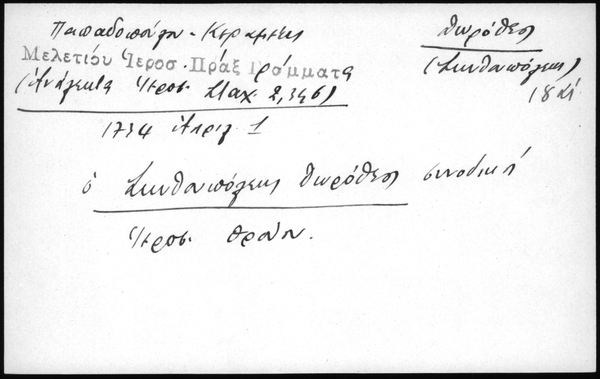 Παπαδοπούλου - Κεραμέως
Μελετίου Ἱεροσ. Πράξ Γράμματα
(Ἀνάλεκτα Ἱεροσ. Σταχ. 2, 346)
Δωρόθεος
(Σκυθοπόλεως)
18
1734 Ἀπριλ 1
ὁ Σκυθοπόλεως Δωρόθεος συνοδικὴ
Ἱεροσ. θρόνου.